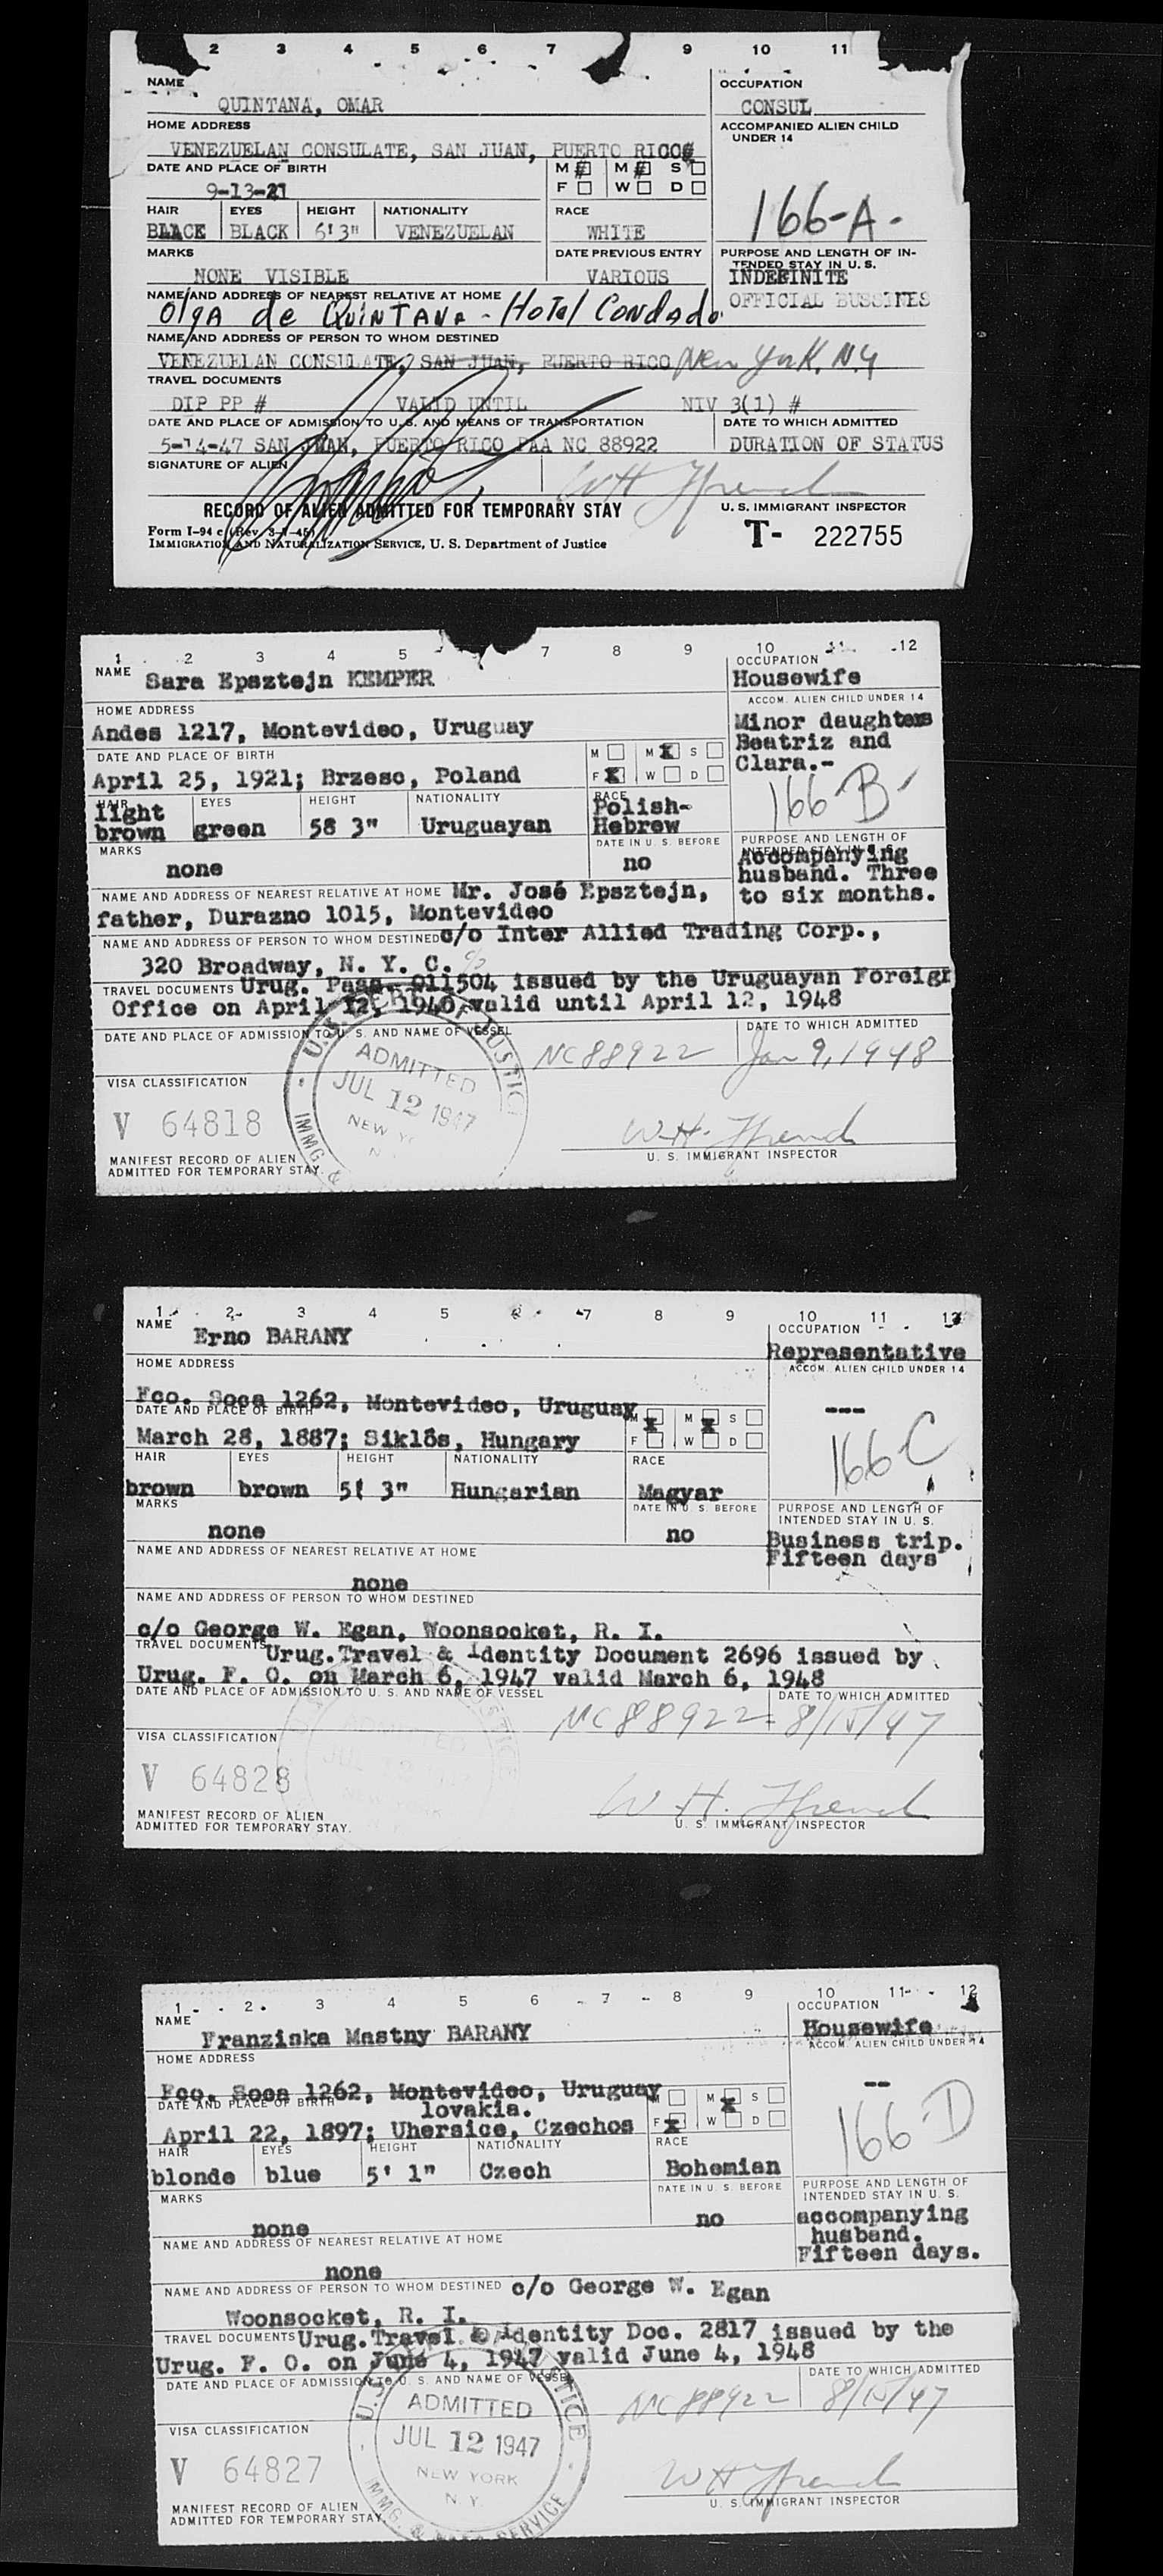 2 3 4 5 6 7 9 10 11
NAME
OCCUPATION
QUINTANA, OMAR
CONSUL
HOME ADDRESS
ACCOMPANIED ALIEN CHILD
UNDER 14
VENEZUELAN CONSULATE, SAN JUAN, PUERTO RICO
DATE AND PLACE OF BIRTH
M M S
F W D
9-13-21
166-A-
HAIR EYES HEIGHT NATIONALITY RACE
BLACK BLACK 6'3" VENEZUELAN WHITE
MARKS DATE PREVIOUS ENTRY
PURPOSE AND LENGTH OF IN-
TENDED STAY IN U. S.
NONE VISIBLE VARIOUS INDEFINITE
OFFICIAL BUSSINES
NAME AND ADDRESS OF NEAREST RELATIVE AT HOME
Olga de QUINTANA - Hotel Condado
NAME AND ADDRESS OF PERSON TO WHOM DESTINED
VENEZUELAN CONSULATE, SAN JUAN, PUERTO RICO New York, N.Y
TRAVEL DOCUMENTS
DIP PP # VALID UNTIL NIV 3(1) #
DATE AND PLACE OF ADMISSION TO U. S. AND MEANS OF TRANSPORTATION DATE TO WHICH ADMITTED
5-14-47 SAN JUAN, PUERTO RICO PAA NC 88922 DURATION OF STATUS
SIGNATURE OF ALIEN
WH French
RECORD OF ALIEN ADMITTED FOR TEMPORARY STAY U. S. IMMIGRANT INSPECTOR
Form I-94 c (Rev. 3-1-45)
IMMIGRATION AND NATURALIZATION SERVICE, U. S. Department of Justice
T- 222755
1 2 3 4 5 7 8 9 10 11 12
NAME Sara Epsztejn KEMPER
OCCUPATION
Housewife
HOME ADDRESS
ACCOM. ALIEN CHILD UNDER 14
Andes 1217, Montevideo, Uruguay
Minor daughters
Beatriz and
Clara.-
DATE AND PLACE OF BIRTH
M M X S
F X W D
April 25, 1921; Brzesc, Poland
166-B-
HAIR EYES HEIGHT NATIONALITY RACE
light
brown green 5' 3" Uruguayan Polish-
Hebrew
MARKS DATE IN U. S. BEFORE
PURPOSE AND LENGTH OF
INTENDED STAY IN U. S.
none no
Accompanying
husband. Three
to six months.
NAME AND ADDRESS OF NEAREST RELATIVE AT HOME Mr. José Epsztejn,
father, Durazno 1015, Montevideo
NAME AND ADDRESS OF PERSON TO WHOM DESTINED c/o Inter Allied Trading Corp.,
320 Broadway, N. Y. C.
TRAVEL DOCUMENTS Urug. Pass. 011504 issued by the Uruguayan Foreign
Office on April 12, 1946, valid until April 12, 1948
DATE AND PLACE OF ADMISSION TO U. S. AND NAME OF VESSEL DATE TO WHICH ADMITTED
NC88922 Jan 9, 1948
ADMITTED
JUL 12 1947
NEW YORK
VISA CLASSIFICATION
V 64818
W.H. French
MANIFEST RECORD OF ALIEN
ADMITTED FOR TEMPORARY STAY.
U. S. IMMIGRANT INSPECTOR
1 2 3 4 5 6 7 8 9 10 11 12
NAME
Erno BARANY
OCCUPATION
Representative
HOME ADDRESS
ACCOM. ALIEN CHILD UNDER 14
Fco. Soca 1262, Montevideo, Uruguay
---
DATE AND PLACE OF BIRTH
M X M X S
F W D
March 28, 1887; Siklós, Hungary
166C
HAIR EYES HEIGHT NATIONALITY RACE
brown brown 5' 3" Hungarian Magyar
MARKS DATE IN U. S. BEFORE
PURPOSE AND LENGTH OF
INTENDED STAY IN U. S.
none no
Business trip.
Fifteen days
NAME AND ADDRESS OF NEAREST RELATIVE AT HOME
none
NAME AND ADDRESS OF PERSON TO WHOM DESTINED
c/o George W. Egan, Woonsocket, R. I.
TRAVEL DOCUMENTS Urug.Travel & Identity Document 2696 issued by
Urug. F. O. on March 6, 1947 valid March 6, 1948
DATE AND PLACE OF ADMISSION TO U. S. AND NAME OF VESSEL DATE TO WHICH ADMITTED
NC88922 8/15/47
ADMITTED
JUL 12 1947
NEW YORK
VISA CLASSIFICATION
V 64828
W. H. French
MANIFEST RECORD OF ALIEN
ADMITTED FOR TEMPORARY STAY.
U. S. IMMIGRANT INSPECTOR
1 2 3 4 5 6 7 8 9 10 11 12
NAME
Franziska Mastny BARANY
OCCUPATION
Housewife
HOME ADDRESS
ACCOM. ALIEN CHILD UNDER 14
Fco. Soca 1262, Montevideo, Uruguay
--
DATE AND PLACE OF BIRTH
lovakia.
M M X S
F X W D
April 22, 1897; Uhersice, Czechos
166-D
HAIR EYES HEIGHT NATIONALITY RACE
blonde blue 5' 1" Czech Bohemian
MARKS DATE IN U. S. BEFORE
PURPOSE AND LENGTH OF
INTENDED STAY IN U. S.
none no
accompanying
husband.
Fifteen days.
NAME AND ADDRESS OF NEAREST RELATIVE AT HOME
none
NAME AND ADDRESS OF PERSON TO WHOM DESTINED c/o George W. Egan
Woonsocket, R. I.
TRAVEL DOCUMENTS Urug.Travel & Identity Doc. 2817 issued by the
Urug. F. O. on June 4, 1947 valid June 4, 1948
DATE AND PLACE OF ADMISSION TO U. S. AND NAME OF VESSEL DATE TO WHICH ADMITTED
NC88922 8/15/47
ADMITTED
JUL 12 1947
NEW YORK
N. Y.
VISA CLASSIFICATION
V 64827
W H French
MANIFEST RECORD OF ALIEN
ADMITTED FOR TEMPORARY STAY.
U. S. IMMIGRANT INSPECTOR